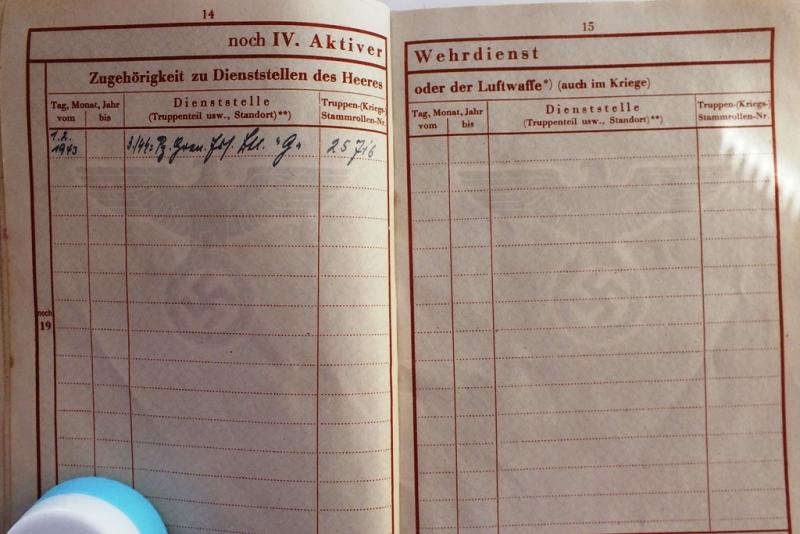 14
noch IV. Aktiver
Zugehörigkeit zu Dienststellen des Heeres
Tag, Monat, Jahr
vom bis
Dienststelle
(Truppenteil usw., Standort)**)
Truppen-(Kriegs-)
Stammrollen-Nr.
1.2.
1943
3/44= Pz. Gren. Ers. Btl. "G"
25 716
noch
19
15
Wehrdienst
oder der Luftwaffe*) (auch im Kriege)
Tag, Monat, Jahr
vom bis
Dienststelle
(Truppenteil usw., Standort)**)
Truppen-(Kriegs-)
Stammrollen-Nr.